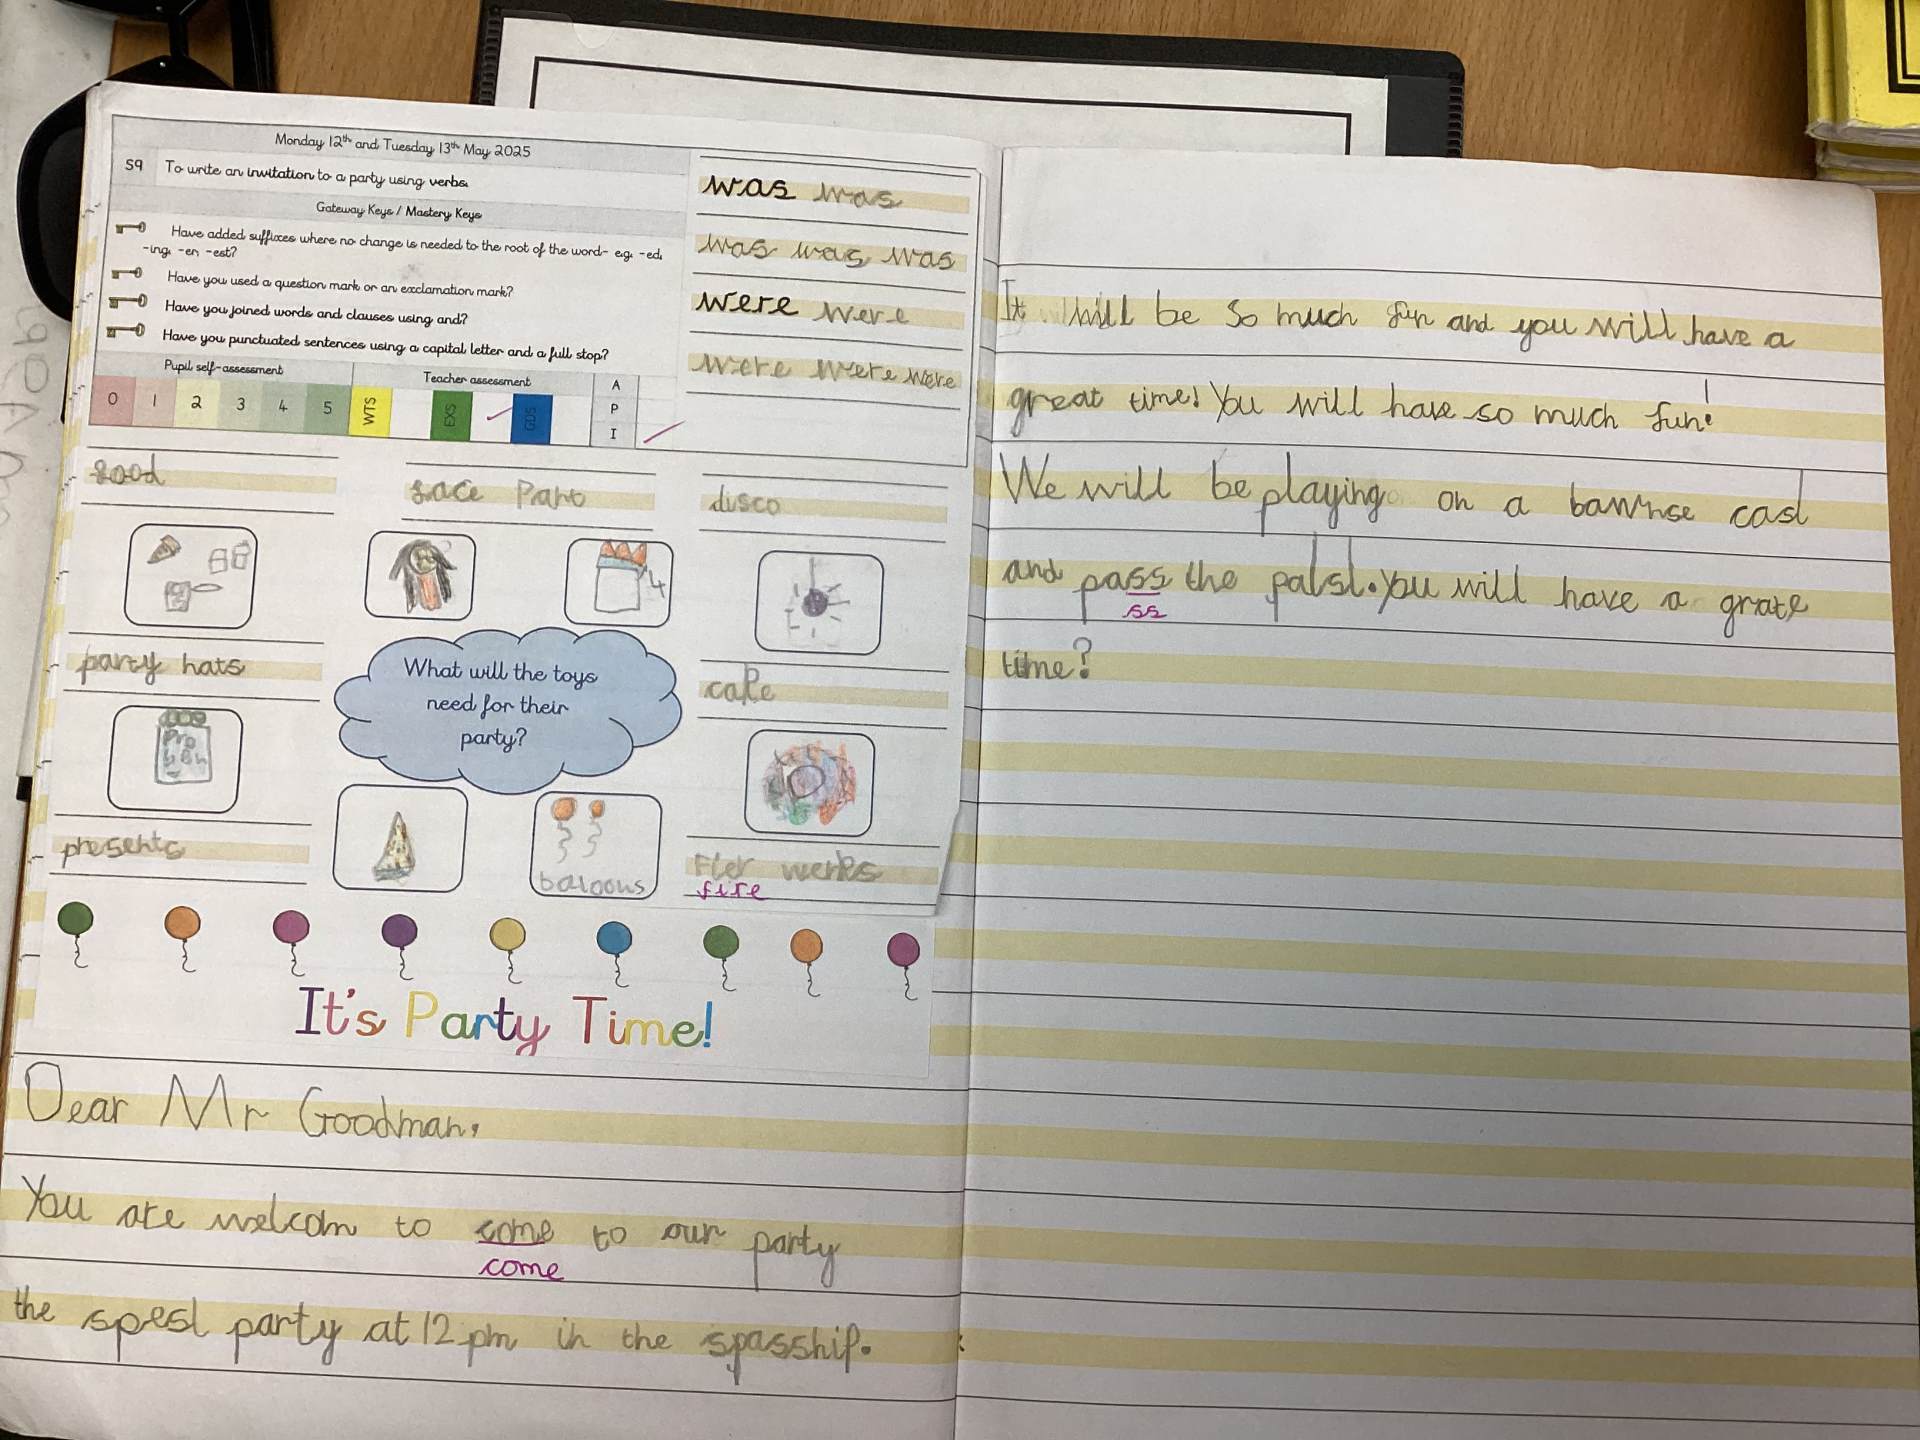 Monday 12th and Tuesday 13th May 2025
S9 To write an invitation to a party using verbs.
Gateway Keys / Mastery Keys
Have added suffixes where no change is needed to the root of the word- e.g. -ed,
-ing, -er, -est?
Have you used a question mark or an exclamation mark?
Have you joined words and clauses using and?
Have you punctuated sentences using a capital letter and a full stop?
Pupil self-assessment
Teacher assessment
0 1 2 3 4 5 WTS EXS GDS
A
P
I
was was
was was was
were were
were were were
food
face Pant
disco
4
party hats
What will the toys
need for their
party?
cake
presents
baloons
Fier werks
fire
It's Party Time!
Dear Mr Goodman,
You are welcom to come to our party
come
the spesl party at 12 pm in the spasship.
It will be so much fun and you will have a
great time! You will have so much fun!
We will be playing on a bawnse casl
and pass the palsl. You will have a grate
ss
time?